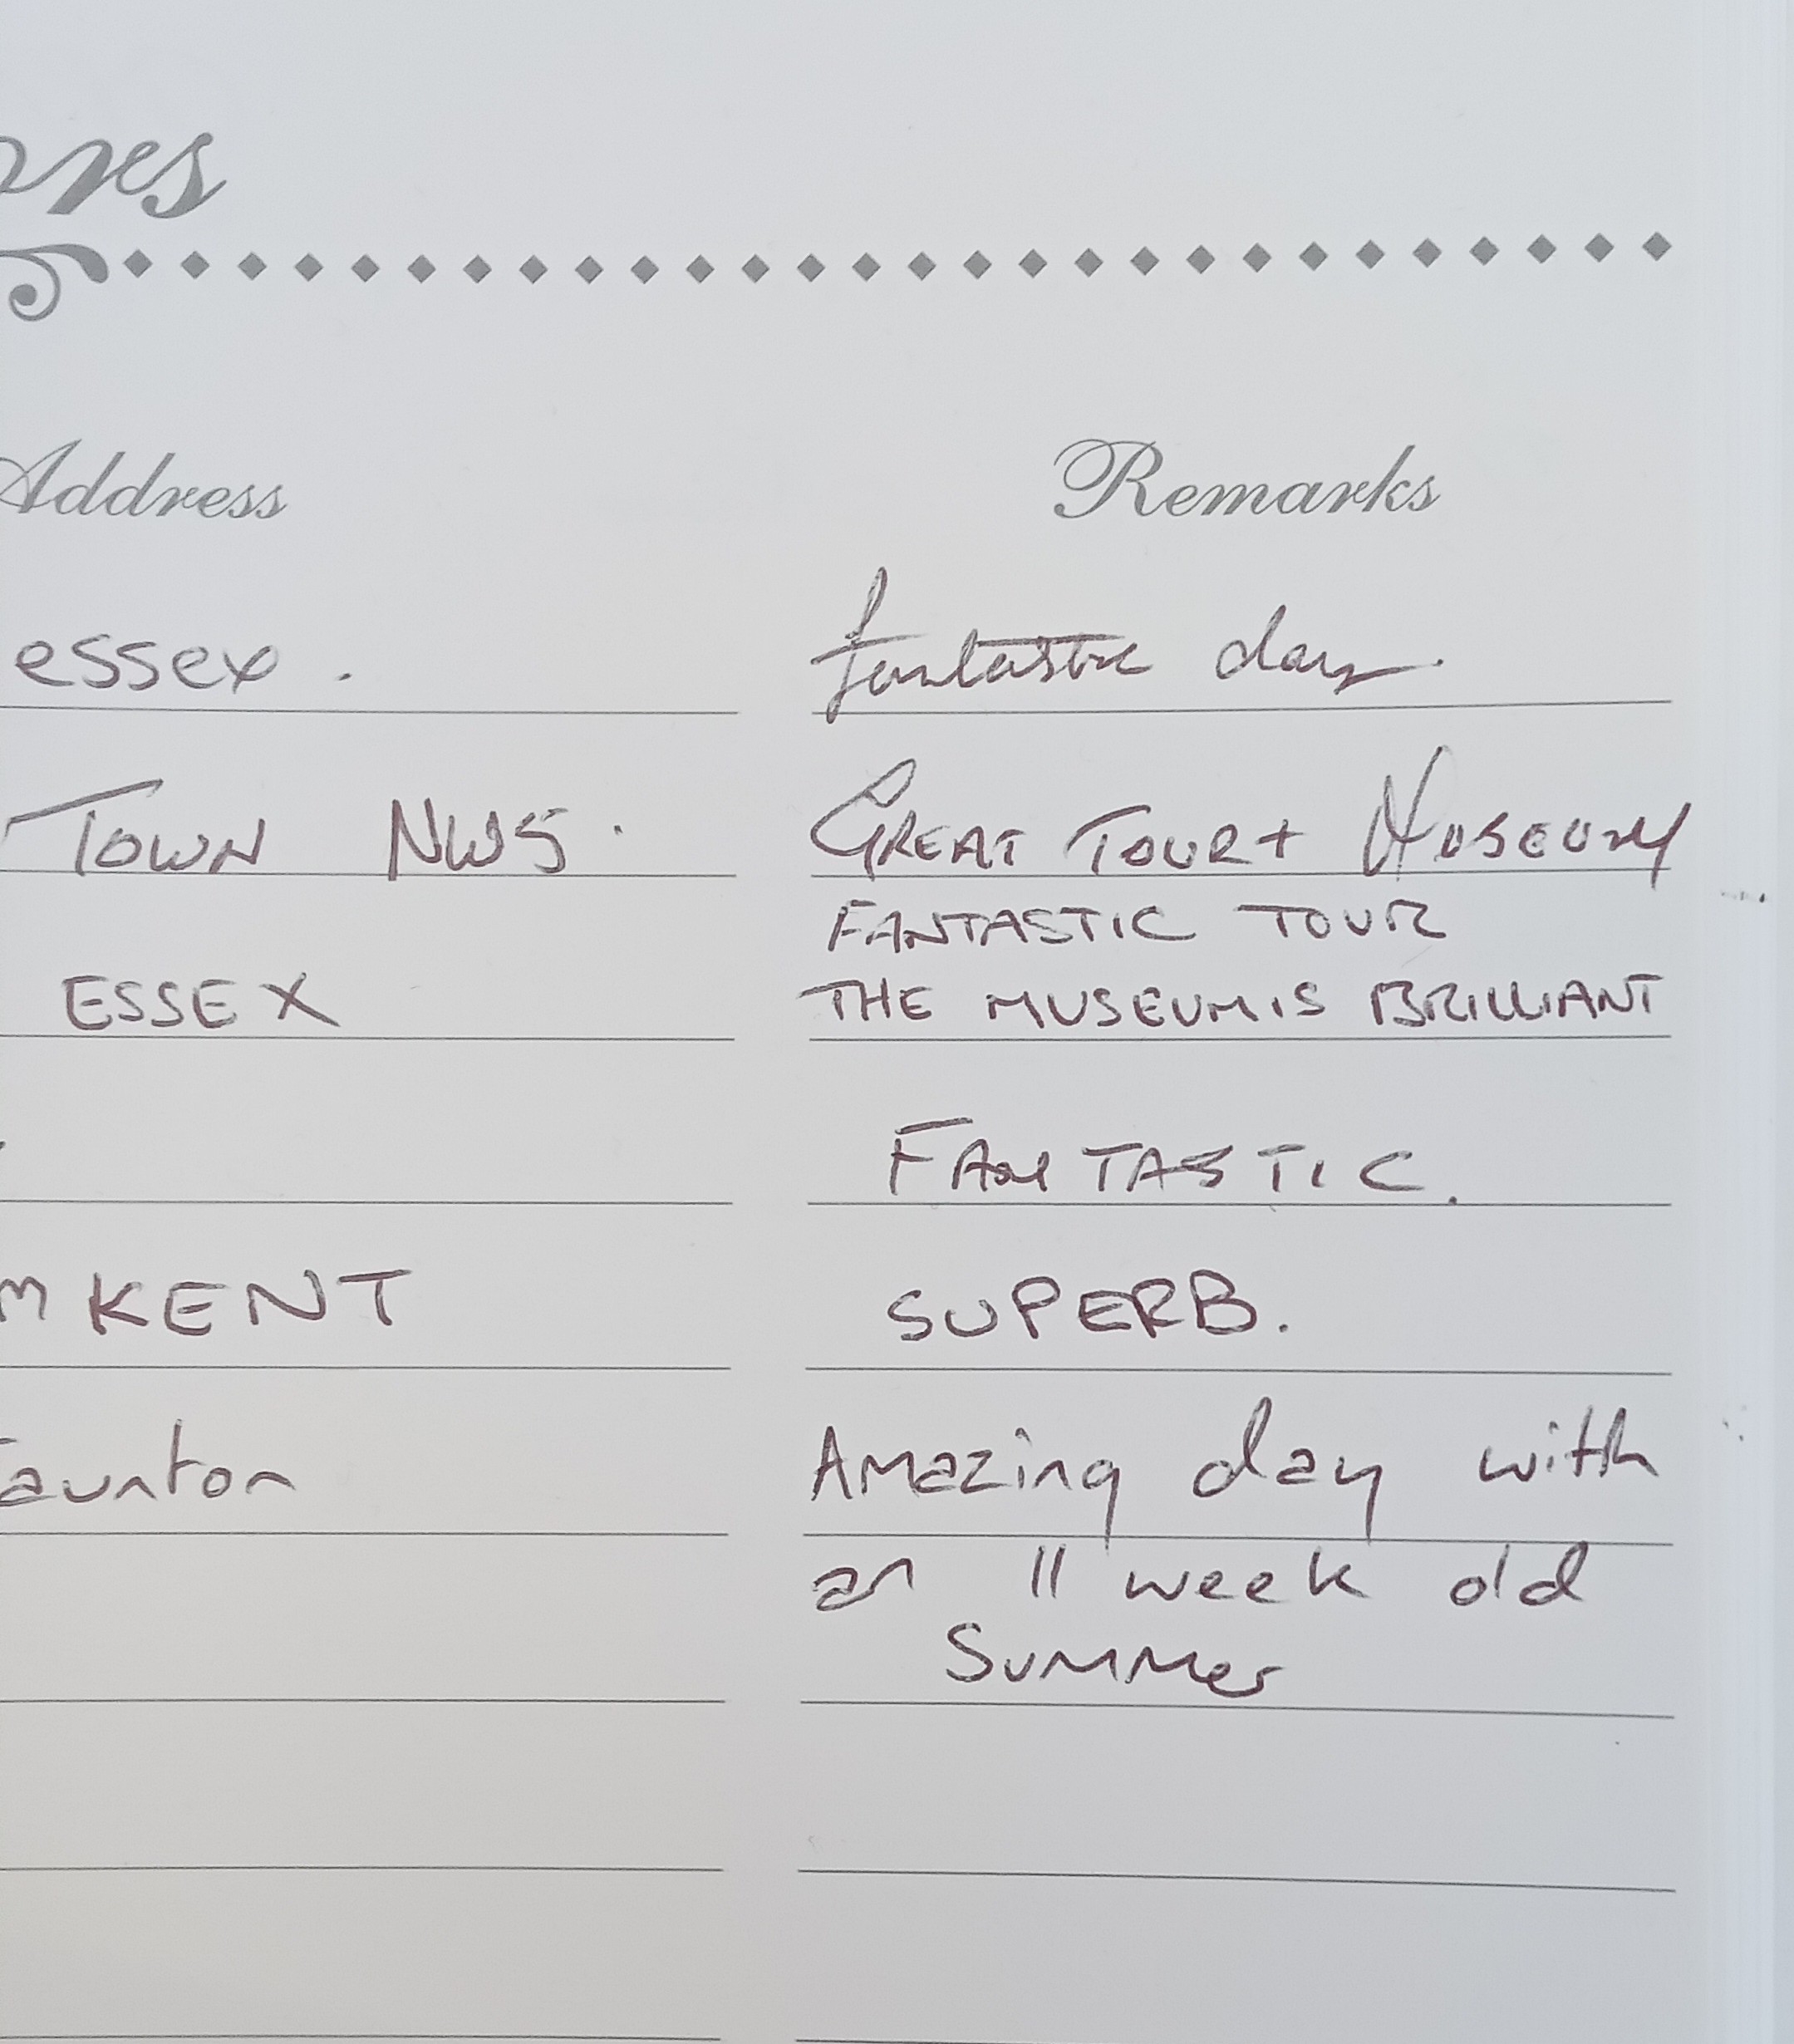 ors
Address Remarks
essex . fantastic day.
TOWN NW5. GREAT TOUR + MUSEUM
FANTASTIC TOUR
ESSEX THE MUSEUM IS BRILLIANT
FANTASTIC.
M KENT SUPERB.
Taunton Amazing day with
an 11 week old
Summer